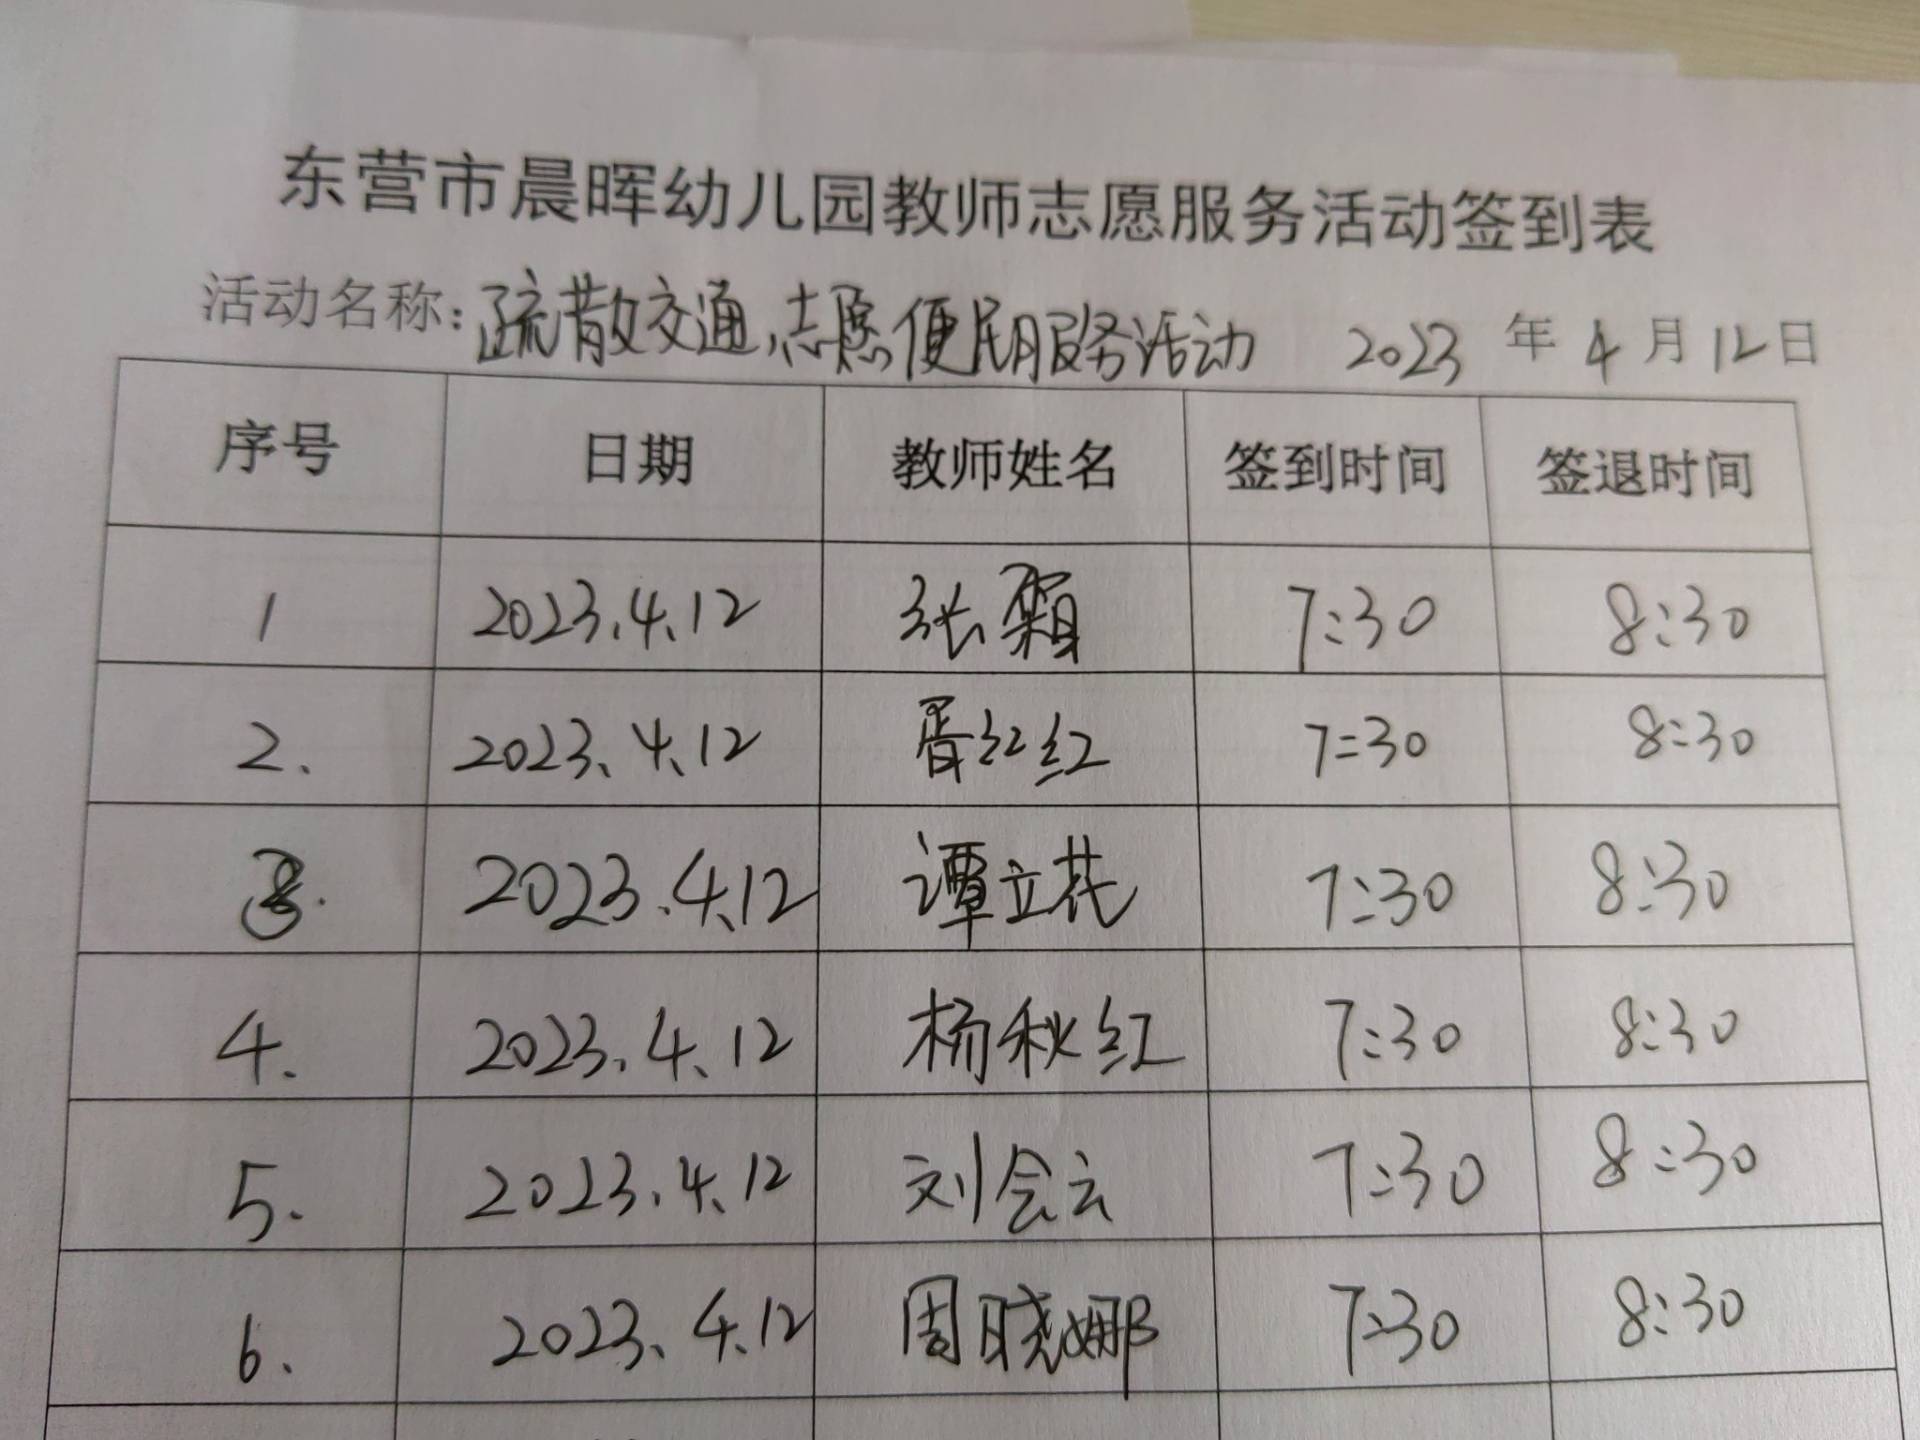 东营市晨晖幼儿园教师志愿服务活动签到表
活动名称:疏散交通,志愿便民服务活动 2023 年 4 月 12 日
序号 日期 教师姓名 签到时间 签退时间
1 2023.4.12 张颖 7:30 8:30
2. 2023.4.12 胥红红 7:30 8:30
3. 2023.4.12 谭立花 7:30 8:30
4. 2023.4.12 杨秋红 7:30 8:30
5. 2023.4.12 刘会云 7:30 8:30
6. 2023.4.12 周晓娜 7:30 8:30